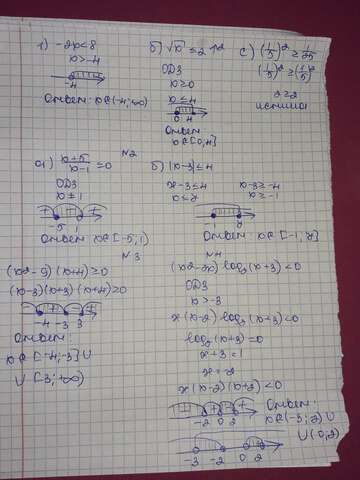 1) -2x<8
x>-4
-4
Ответ x∈(-4;∞)
б) √x ≤ 2 ↑2
ОДЗ
x≥0
x≤4
0 4
Ответ
x∈[0,4]
с) (1/5)² ≥ 1/25
(1/5)² ≥ (1/5)²
2≥2
истина
N2
а) x+5/x-1 ≤0
ОДЗ
x≠1
+ - +
-5 1
Ответ x∈[-5;1)
б) |x-3|≤4
x-3≤4
x≤7
x-3≥-4
x≥-1
-1 7
Ответ: x∈[-1,7]
N3
(x2-9)(x+4)≥0
(x-3)(x+3)(x+4)≥0
-4 -3 3
Ответ:
x∈[-4;-3]∪
∪[3;+∞)
N4
(x2-2x)log₂(x+3)<0
ОДЗ
x>-3
x(x-2)log₂(x+3)<0
log₂(x+3)=0
x+3=1
x=-2
x(x-2)(x+2)<0
-2 0 2
-3 -2 0 2
Ответ:
x∈(-3;2)∪
∪(0,2)